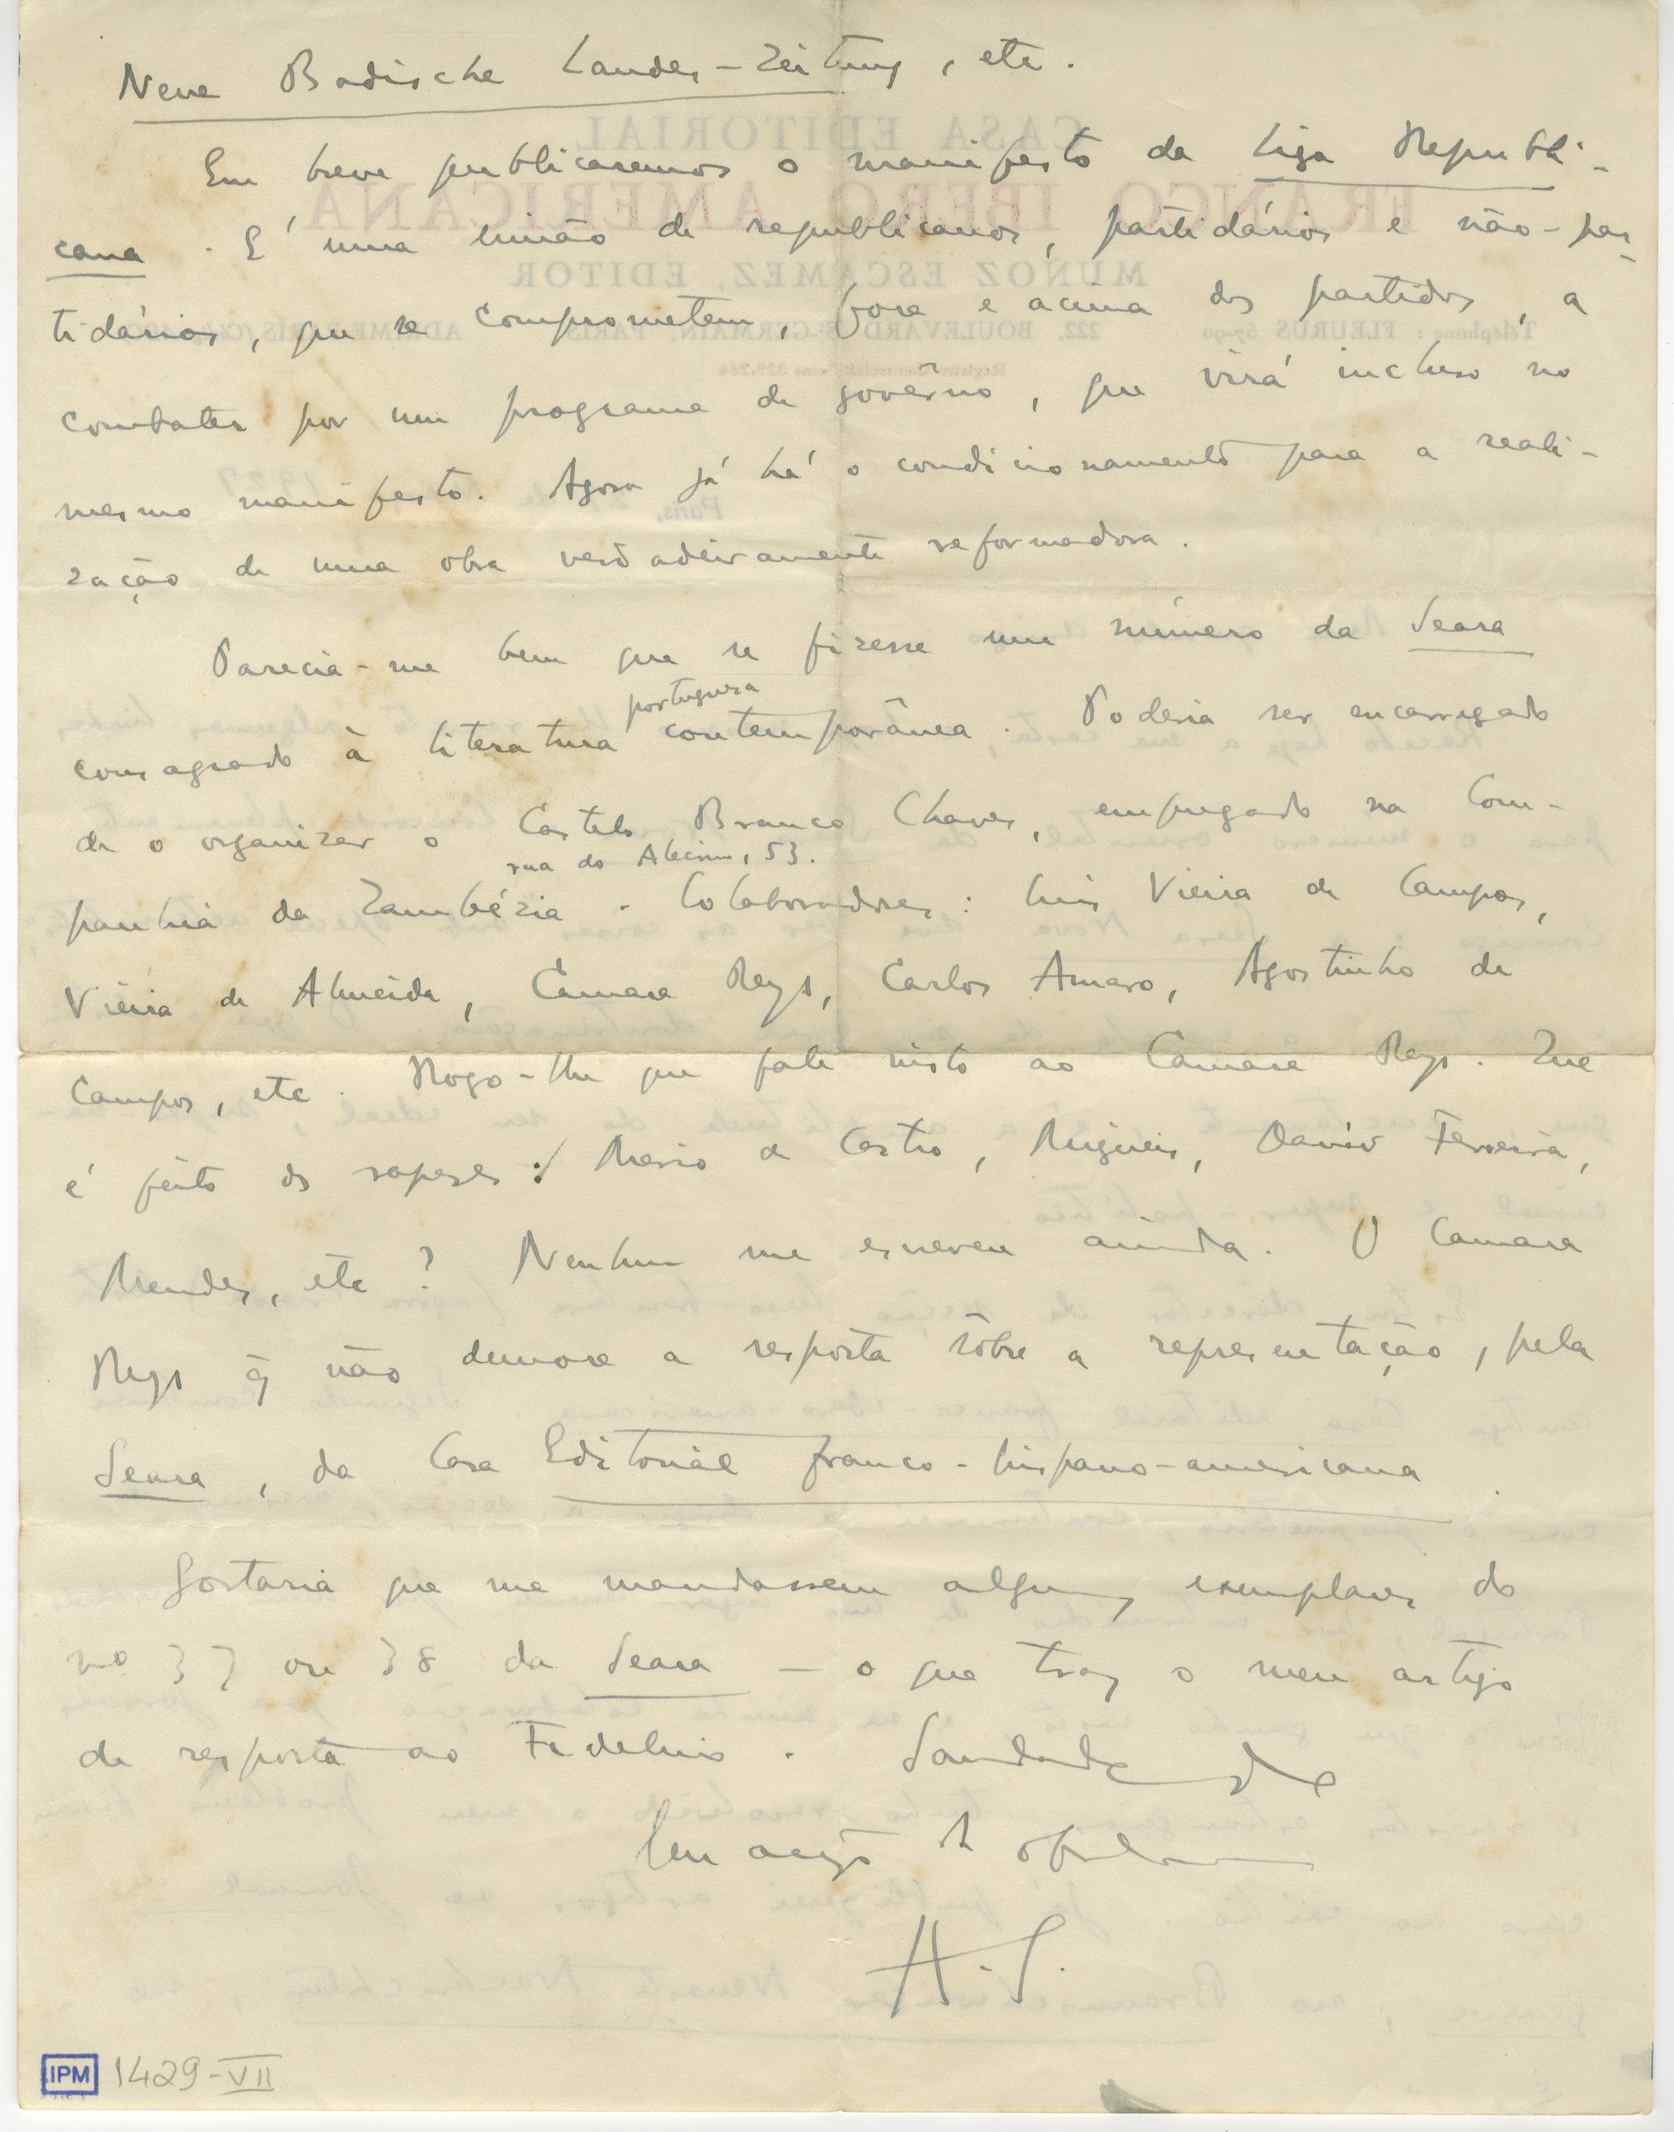 Neue Badische Landes-Zeitung, etc.
Em breve publicaremos o manifesto da Liga Republi-
cana. É uma união de republicanos, partidários e não-par-
tidários, que se comprometem, fora e acima dos partidos, a
combater por um programa de govêrno, que virá incluso no
mesmo manifesto. Agora já há o condicionamento para a reali-
zação de uma obra verdadeiramente reformadora.
Parecia-me bem que se fizesse um número da Seara
portuguesa
consagrado à literatura contemporânea. Poderia ser encarregado
de o organizar o Castelo Branco Chaves, empregado na Com-
rua do Alecrim, 53.
panhia da Zambézia. Colaboradores: Luis Vieira de Campos,
Vieira de Almeida, Câmara Reys, Carlos Amaro, Agostinho de
Campos, etc. Rogo-lhe que fale nisto ao Camara Reys. Que
é feito dos rapazes: Mario de Castro, Miguéis, David Ferreira,
Mendes, etc? Nenhum me escreveu ainda. O Camara
Reys q̃ não demore a resposta sôbre a representação, pela
Seara, da Casa Editorial franco-hispano-americana.
Gostaria que me mandassem alguns exemplares do
nº 37 ou 38 da Seara — o que traz o meu artigo
de resposta ao Fidelino. Saudades do
Seu amigo
A. S.
IPM 1429-VII
CASA EDITORIAL
FRANCO IBERO AMERICANA
MUÑOZ ESCAMEZ, EDITOR
Téléphone : FLEURUS 67-90 222, BOULEVARD S-GERMAIN, PARIS
Paris,